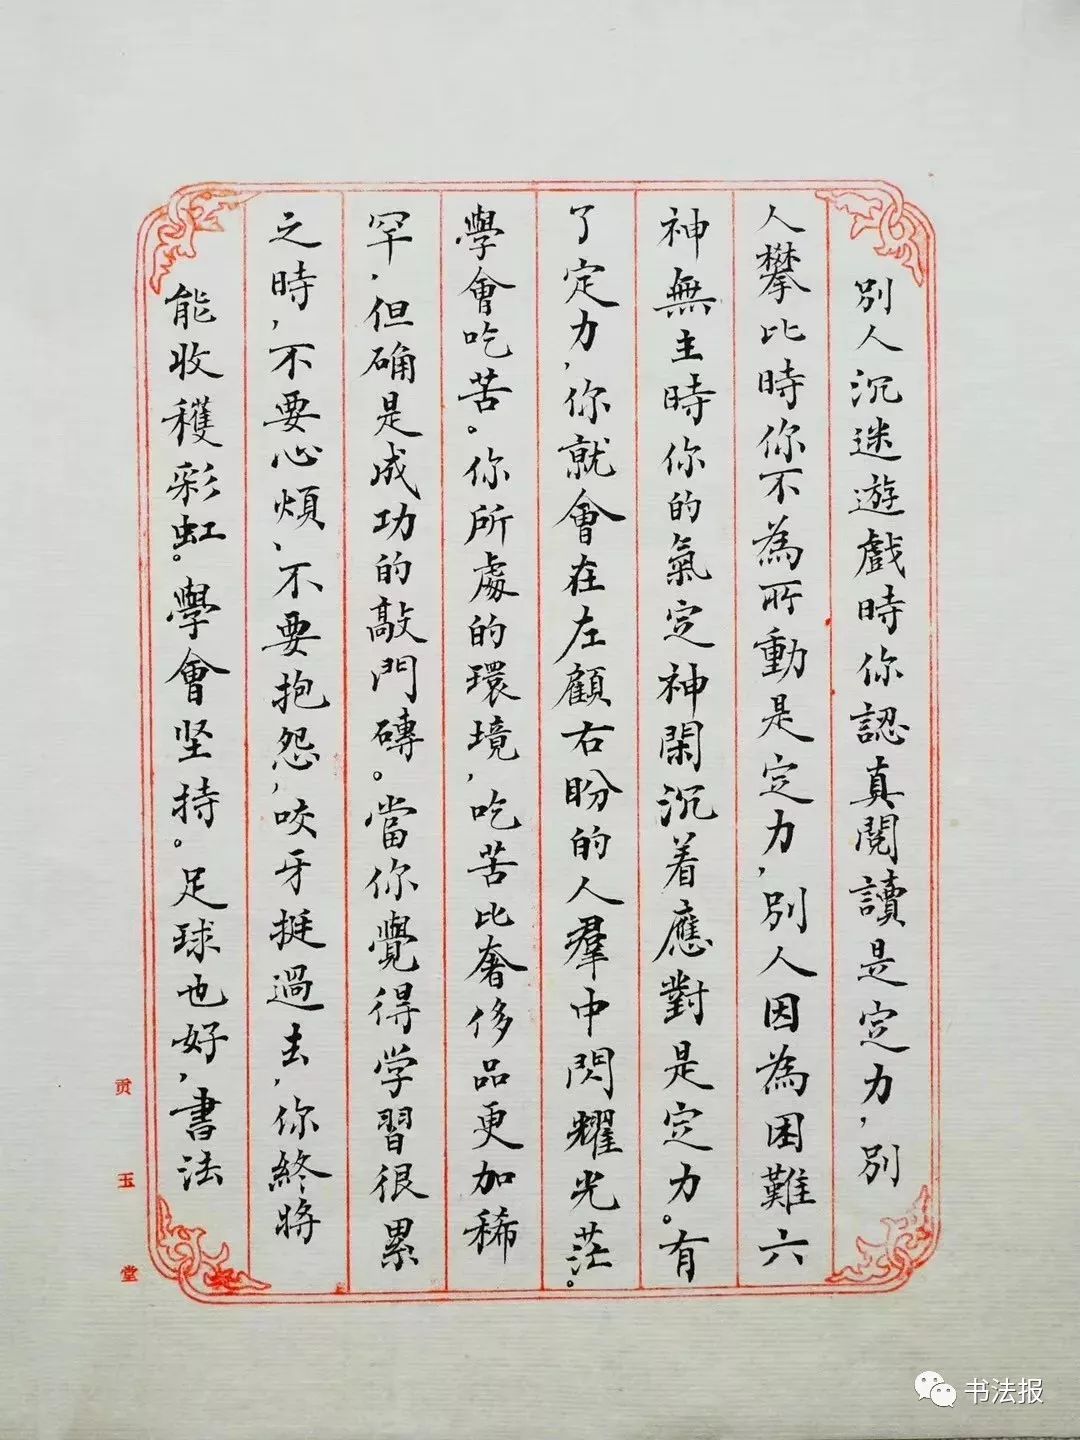 別人沉迷遊戲時你認真閱讀是定力，別
人攀比時你不為所動是定力，別人因為困難六
神無主時你的氣定神閑沉着應對是定力。有
了定力，你就會在左顧右盼的人羣中閃耀光茫。
學會吃苦。你所處的環境，吃苦比奢侈品更加稀
罕，但确是成功的敲門磚。當你覺得学習很累
之時，不要心煩、不要抱怨，咬牙挺過去，你終將
能收穫彩虹。學會坚持。足球也好，書法
贡玉堂
书法报